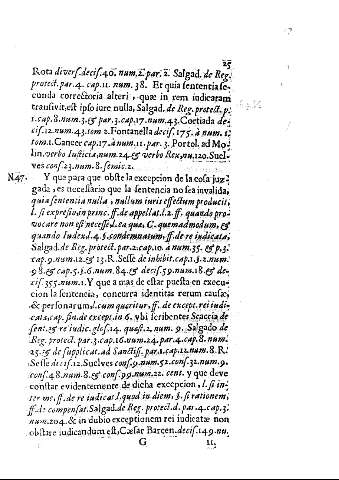 25
Rota divers. decis. 40. num. 2. par. 2. Salgad. de Reg.
protect. par. 4. cap. 11. num. 38. Et quia sententia se-
cunda correctoria alteri, quæ in rem iudicatam
transivit, est ipso iure nulla, Salgad. de Reg. protect. p.
1. cap. 8. num. 3. & par. 3. cap. 17. num. 43. Cortiada de-
cis. 12. num. 43. tom 2. Fontanella decis. 175. à num. 1.
tom. 1. Cancer cap. 17. à num. 11. par. 3. Portol. ad Mo-
lin. verbo Iusticia, num. 24. & verbo Reu, nu. 120. Suel-
ves cons. 23. num. 8. semic. 2.
N.47. Y que para que obste la excepcion de la cosa juz-
gada, es necessario que la sentencia no sea invalida,
quia sententia nulla, nullum iuris effectum producit,
l. si expresio, in princ. ff. de appellat. l. 2. ff. quando pro-
vocare non est necesse, l. ea que, C. quemadmodum, et
quando Iudex. l. 4. §. condemnatum, ff. de re iudicata,
Salgad. de Reg. protect. par. 2. cap. 10. à num. 35. & p. 3.
cap. 9. num. 12. & 13. R. Sesse de inhibit. cap. 1. §. 2. num.
98. & cap. 5. §. 6. num. 84. & decis. 59. num. 18. & de-
cis. 355. num. 1. Y que a mas de estar puesta en execu-
cion la sentencia, concurra identitas rerum causæ,
& personarum l. cum quæritur, ff. de except. rei iudi-
cata, cap. fin. de except. in 6. vbi scribentes Scaccia de
sent. & re iudic. glos. 14. quæst. 2. num. 9. Salgado de
Reg. protect. par. 3. cap. 16. num. 24. par. 4. cap. 8. num.
25. & de supplicat. ad Sanctiss. par. 1. cap. 12. num. 8. R.
Sesse decis. 12. Suelves cons. 9. num. 52. cons. 32. num. 9.
cons. 48. num. 8. & cons. 99. num. 22. cent. y que deve
constar evidentemente de dicha excepcion, l. si in-
ter me, ff. de re iudicat. l. quod in diem, §. si rationem,
ff. de compensat. Salgad. de Reg. protect. d. par. 4. cap. 3.
num. 204. & in dubio exceptionem rei iudicatæ non
obstare iudicandum est, Cæsar Barcen. decis. 149. nu.
G 11.